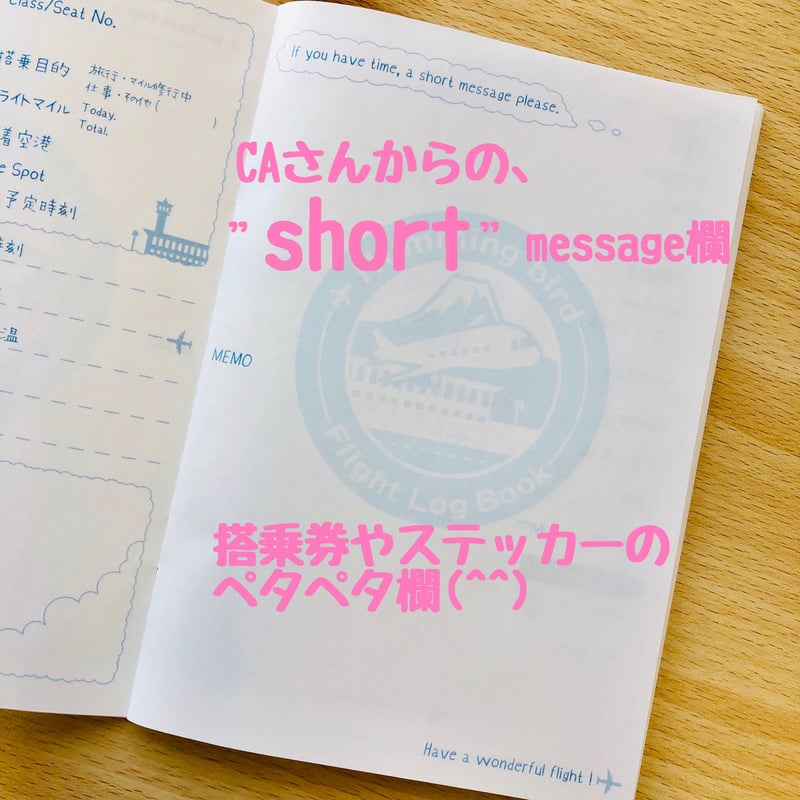 Class/Seat No.
搭乗目的 旅行・マイル修行中
仕事・その他( )
ライトマイル Today.
Total.
着空港
e Spot
予定時刻
刻
温
If you have time, a short message please.
CAさんからの、
"short" message欄
Humming bird
MEMO
Flight Log Book
搭乗券やステッカーの
ペタペタ欄(^^)
Have a wonderful flight!